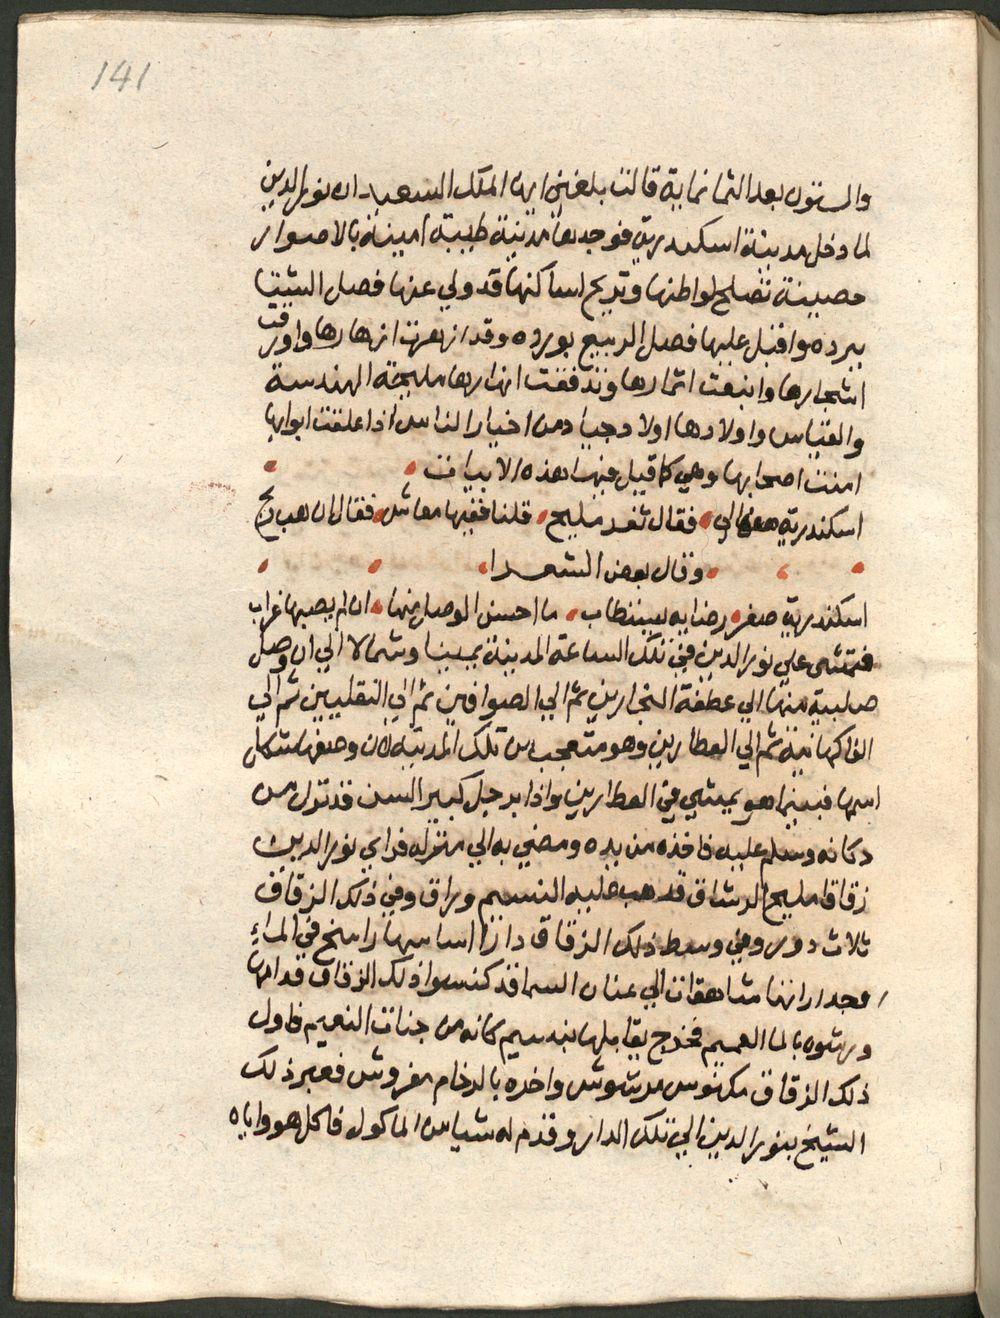 141
والستون بعد الثمانماية قالت بلغني ايها الملك السعيد ان نور الدين
لما دخل مدينة اسكندرية فوجدها مدينة طيبة امينة بالاصوار
حصينة تصلح لواطنها وتريح لساكنها قد ولي عنها فصل الشتا
ببرده واقبل عليها فصل الربيع بورده وقد ازهرت ازهارها واورقت
اشجارها واينعت اثمارها وتدفقت انهارها مليحة الهندسة
والقياس واولادها اولاد جياد من اخيار الناس اذا علقت ابوابها
امنت اصحابها وهي كما قيل فيها هذه الابيات
اسكندرية فقال ثغر مليح قلنا ففيها معاش فقال ان هب ريح
وقال بعض الشعرا
اسكندرية صغر رضابه يستطاب ما احسن الوصل منها ان لم يصبها غراب
فتمشى علي نور الدين في تلك الساعة المدينة يمينا وشمالا الي ان وصل
صلبية منها الي عطفة النجارين ثم الي الصوافين ثم الي النقليين ثم الي
الفاكهانية ثم الي العطارين وهو متعجب من تلك المدينة لان وصفها شاكل
اسمها فبينما هو يمشي في العطارين واذا برجل كبير السن قد نزل من
دكانه وسلم عليه فاخذه من يده ومضي به الي منزله فراي نور الدين
زقاقا مليح الرشاق قد هب عليه النسيم وراق وفي ذلك الزقاق
ثلاث دور وفي وسط ذلك الزقاق دارا اساسها راسخ في الماء
وجدرانها شاهقات الي عنان السما قد كنسوا ذلك الزقاق قدامها
ورشوه بالما العميم فخرج يقابلها بنسيم كانه من جنات النعيم فاول
ذلك الزقاق مكنوس مرشوش واخره بالرخام مفروش فعبر ذلك
الشيخ بنور الدين الي تلك الدار وقدم له شيا من الماكول فاكل هو واياه